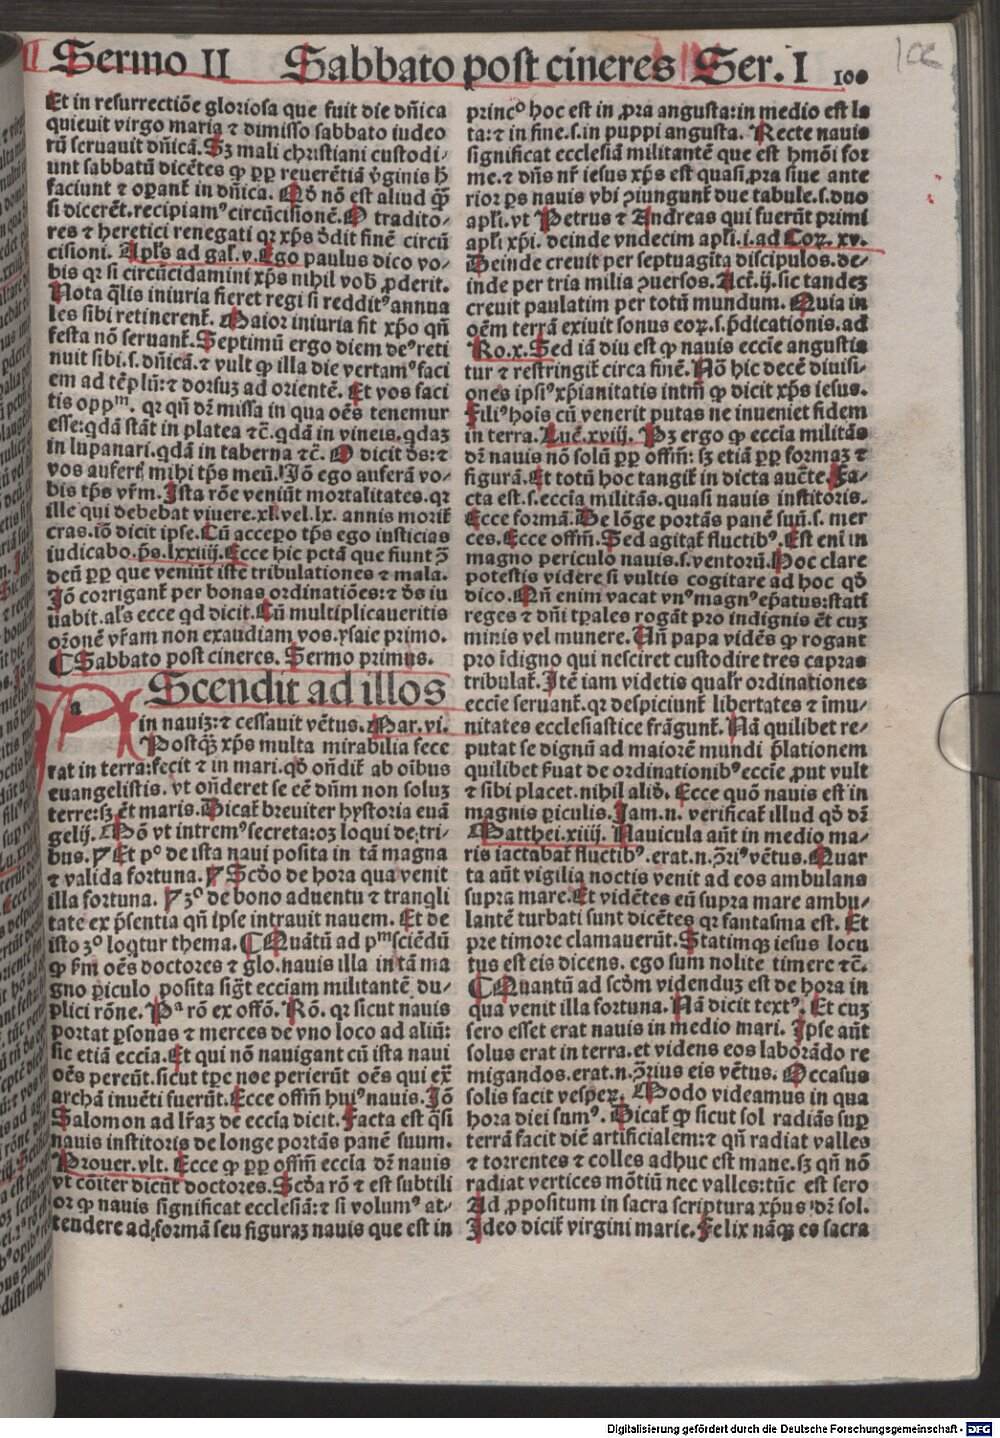 Sermo II Sabbato post cineres Ser. I 100
106
Et in resurrectiõe gloriosa que fuit die dñica
quieuit virgo maria ⁊ dimisso sabbato iudeo
rũ seruauit dñicã. Sꝫ mali christiani custodi⸗
unt sabbatũ dicẽtes ꝙ ꝓp reuerẽtiã v̾ginis h̃
faciunt ⁊ oꝑant᷑ in dñica. Qd̾ nõ est aliud q̃ꝫ
si dicerẽt. recipiamꝰ circũcisionẽ. O tradito⸗
res ⁊ heretici renegati qꝛ xp̃s d̾dit finẽ circũ
cisioni. Apl̃s ad gal̾. v. Ego paulus dico vo⸗
bis qꝛ si circũcidamini xp̃s nihil vob̾ ꝓderit.
Nota q̃lis iniuria fieret regi si redditꝰ annua
les sibi retinerent᷑. Maior iniuria fit xp̃o qñ
festa nõ seruant᷑. Septimũ ergo diem deꝰ reti
nuit sibi. s. dñicã. ⁊ vult ꝙ illa die vertamꝰ faci
em ad tẽplũ: ⁊ dorsuꝫ ad orientẽ. Et vos faci
tis oppᵐ. qꝛ qñ dr̃ missa in qua oẽs tenemur
esse: qdã stãt in platea ⁊c̃. qdã in vineis. qdaꝫ
in lupanari. qdã in taberna ⁊c̃. O dicit ds̃: ⁊
vos aufert᷑ mihi tp̃s meũ. Iõ ego auferã vo⸗
bis tp̃s vr̃m. Ista rõe veniũt mortalitates. qꝛ
ille qui debebat viuere. xl. vel. lx. annis morit᷑
cras. iõ dicit ipse. Cũ accepo tp̃s ego iusticias
iudicabo. ps̃. lxxiiij. Ecce hic pctã que fiunt ꝯ̃
deũ ꝓp que veniũt iste tribulationes ⁊ mala.
Iõ corrigant᷑ per bonas ordinatiões: ⁊ ds̃ iu
uabit. al̃s ecce qd dicit. Cũ multiplicaueritis
or̃onẽ vr̃am non exaudiam vos. ysaie primo.
¶ Sabbato post cineres. Sermo primus.
AScendit ad illos
in nauiꝫ: ⁊ cessauit vẽtus. Mar. vi.
Postq̃ꝫ xp̃s multa mirabilia fece
rat in terra: fecit ⁊ in mari. qd̾ oñdit᷑ ab oĩbus
euangelistis. vt oñderet se eẽ dñm non soluꝫ
terre: sꝫ ẽt maris. Dicat᷑ breuiter hystoria euã
gelij. Mõ vt intremꝰ secreta: oꝫ loqui de tri⸗
bus. ⁋ Et pº de ista naui posita in tã magna
⁊ valida fortuna. ⁋ Scd̾o de hora qua venit
illa fortuna. ⁋ 3º de bono aduentu ⁊ trãqli
tate ex p̃sentia qñ ipse intrauit nauem. Et de
isto 3º loqtur thema. ¶ Quãtũ ad pᵐ sciẽdũ
ꝙ ẜm oẽs doctores ⁊ glo. nauis illa in tã ma
gno ꝑiculo posita sig̃t ecciam militantẽ du⸗
plici rõne. Pª rõ ex offõ. Rõ. qꝛ sicut nauis
portat ꝑsonas ⁊ merces de vno loco ad aliũ:
sic etiã eccĩa. Et qui nõ nauigant cũ ista naui
oẽs pereũt. sicut tp̃e noe perierũt oẽs qui ex̃
archã inuẽti fuerũt. Ecce offm̃ huiꝰ nauis. Iõ
Salomon ad lr̃aꝫ de eccĩa dicit. Facta est q̃si
nauis institoris de longe portãs panẽ suum.
Prouer. vlt. Ecce ꝙ ꝓp offm̃ eccĩa dr̃ nauis
vt cõiter dicũt doctores. Scd̾a rõ ⁊ est subtili
or ꝙ nauis significat ecclesiã: ⁊ si volumꝰ at⸗
tendere ad formã seu figuraꝫ nauis que est in
princº hoc est in ꝓra angusta: in medio est la
ta: ⁊ in fine. s. in puppi angusta. Recte nauis
significat ecclesiã militantẽ que est hm̃õi for
me. ⁊ dñs nr̃ iesus xp̃s est quasi ꝓra siue ante
rior ps nauis vbi ꝯiungunt᷑ due tabule. s. duo
apl̃i. vt Petrus ⁊ Andreas qui fuerũt primi
apl̃i xp̃i. deinde vndecim apl̃i. i. ad Coꝝ. xv.
Deinde creuit per septuagita discipulos. de⸗
inde per tria milia ꝯuersos. Act̾. ij. sic tandeꝫ
creuit paulatim per totũ mundum. Quia in
oẽm terrã exiuit sonus eoꝝ. s. p̃dicationis. ad
Ro. x. Sed iã diu est ꝙ nauis eccĩe angustia
tur ⁊ restringit᷑ circa finẽ. Nõ hic decẽ diuisi⸗
ones ipsiꝰ xp̃ianitatis intm̃ ꝙ dicit xp̃s iesus.
Filiꝰ hoĩs cũ venerit putas ne inueniet fidem
in terra. Luc̃. xviij. Pꝫ ergo ꝙ eccĩa militãs
dr̃ nauis nõ solũ ꝓp offm̃: sꝫ etiã ꝓp formaꝫ ⁊
figurã. Et totũ hoc tangit᷑ in dicta auc̃te. Fa⸗
cta est. s. eccĩa militãs. quasi nauis institoris.
Ecce formã. De lõge portãs panẽ suũ. s. mer
ces. Ecce offm̃. Sed agitat᷑ fluctibꝰ. Est eni in
magno periculo nauis. s. ventorũ. Hoc clare
potestis videre si vultis cogitare ad hoc qd̾
dico. Qñ enim vacat vnꝰ magnꝰ ep̃atus: stati
reges ⁊ dñi tp̃ales rogãt pro indignis ẽt cuꝫ
minis vel munere. Añ papa vidẽs ꝙ rogant
pro ĩdigno qui nesciret custodire tres capras
tribulat᷑. Itẽ iam videtis qual̃r ordinationes
eccĩe seruant᷑. qꝛ despiciunt᷑ libertates ⁊ imu⸗
nitates ecclesiastice frãgunt᷑. Nã quilibet re⸗
putat se dignũ ad maiorẽ mundi p̃lationem
quilibet ẜuat de ordinationibꝰ eccĩe ꝓut vult
⁊ sibi placet. nihil alid̾. Ecce quõ nauis est in
magnis ꝑiculis. Iam. n. verificat᷑ illud qd̾ dr̃
Matthei. xiiij. Nauicula aũt in medio ma⸗
ris iactabat᷑ fluctibꝰ. erat. n. ꝯ̃riꝰ vẽtus. Quar
ta aũt vigilia noctis venit ad eos ambulans
supra mare. Et vidẽtes eũ supra mare ambu⸗
lantẽ turbati sunt dicẽtes qꝛ fantasma est. Et
pre timore clamauerũt. Statimqꝫ iesus locu
tus est eis dicens. ego sum nolite timere ⁊c̃.
¶ Quantũ ad scd̾m videnduꝫ est de hora in
qua venit illa fortuna. Nã dicit textꝰ. Et cuꝫ
sero esset erat nauis in medio mari. Ipse aũt
solus erat in terra. et videns eos laborãdo re
migandos. erat. n. ꝯ̃rius eis vẽtus. Occasus
solis facit vesꝑeꝫ. Modo videamus in qua
hora diei sumꝰ. Dicat᷑ ꝙ sicut sol radiãs suꝑ
terrã facit diẽ artificialem: ⁊ qñ radiat valles
⁊ torrentes ⁊ colles adhuc est mane. sꝫ qñ nõ
radiat vertices mõtiũ nec valles: tũc est sero
Ad ꝓpositum in sacra scriptura xp̃us dr̃ sol.
Ideo dicit᷑ virgini marie. Felix nãqꝫ es sacra
Digitalisierung gefördert durch die Deutsche Forschungsgemeinschaft - DFG